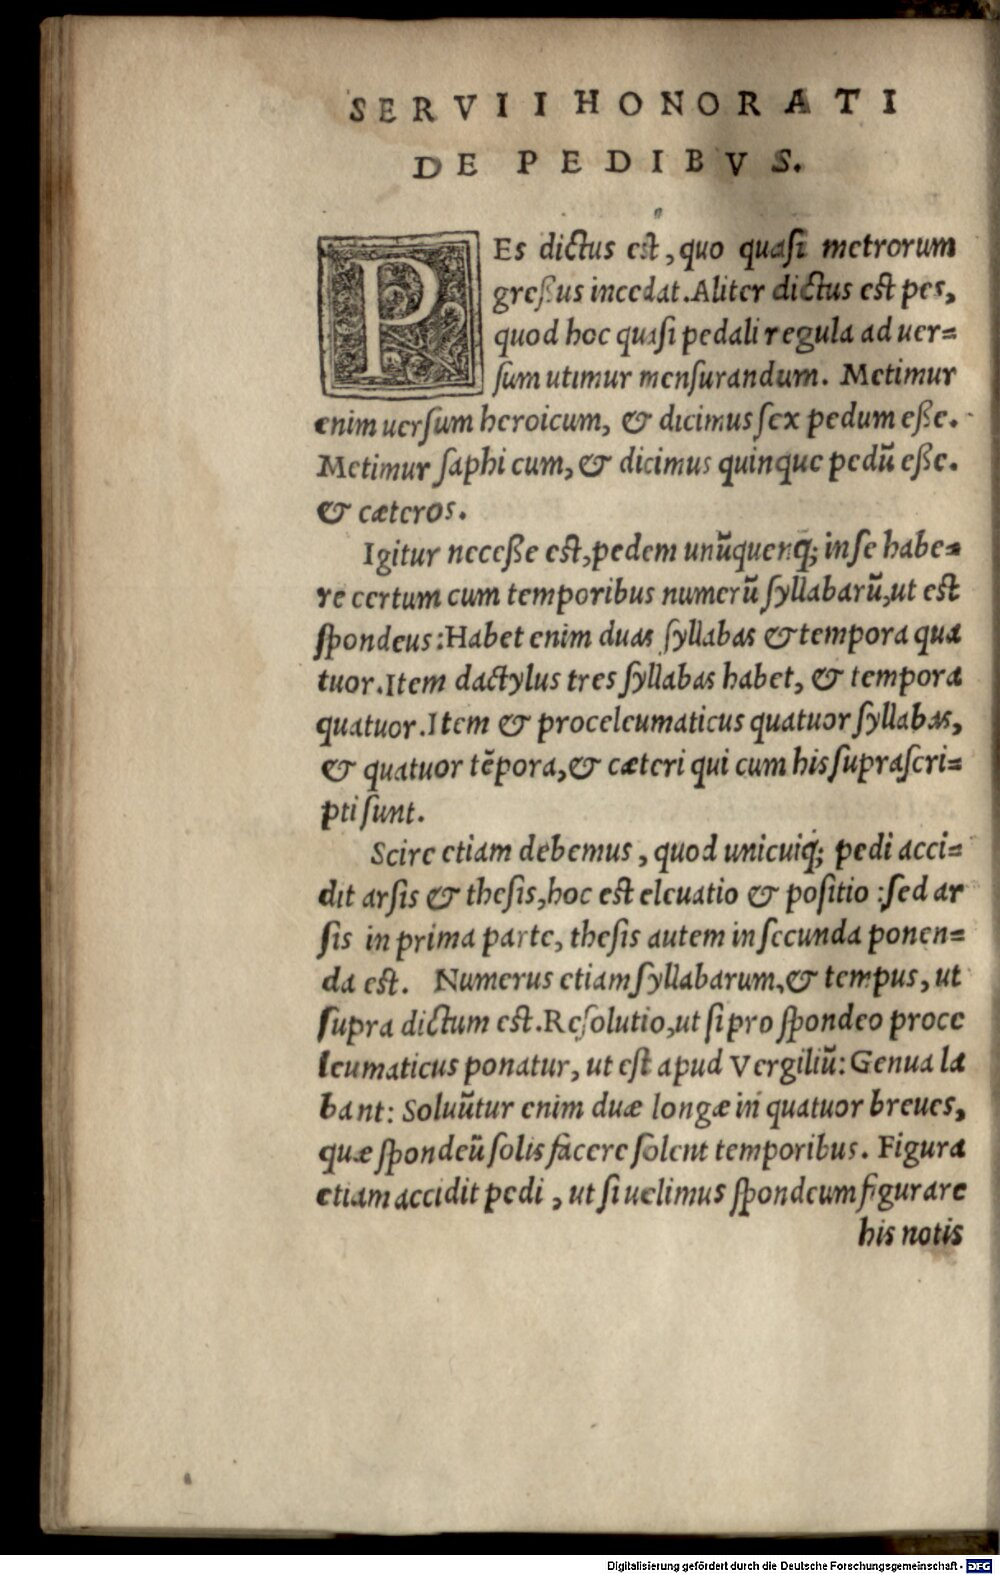 SERVII HONORATI
DE PEDIBVS.
PEs dictus est, quo quasi metrorum
greſſus incedat. Aliter dictus est pes,
quod hoc quaſi pedali regula ad uer=
ſum utimur menſurandum. Metimur
enim uerſum heroicum, & dicimus ſex pedum eße.
Metimur ſaphi cum, & dicimus quinque pedū eße.
& cæteros.
Igitur neceße est, pedem unūquenq; in ſe habe=
re certum cum temporibus numerū ſyllabarū, ut est
ſpondeus: Habet enim duas ſyllabas & tempora qua
tuor. Item dactylus tres ſyllabas habet, & tempora
quatuor. Item & proceleumaticus quatuor ſyllabas,
& quatuor tēpora, & cæteri qui cum his ſupraſcri=
pti ſunt.
Scire etiam debemus, quod unicuiq; pedi acci=
dit arſis & theſis, hoc est eleuatio & poſitio: ſed ar
ſis in prima parte, theſis autem in ſecunda ponen=
da est. Numerus etiam ſyllabarum, & tempus, ut
ſupra dictum est. Reſolutio, ut ſi pro ſpondeo proce
leumaticus ponatur, ut eſt apud Vergiliū: Genua la
bant: Soluūtur enim duæ longæ in quatuor breues,
quæ ſpondeū ſolis facere ſolent temporibus. Figura
etiam accidit pedi, ut ſi uelimus ſpondeum figurare
his notis
Digitalisierung gefördert durch die Deutsche Forschungsgemeinschaft - DFG